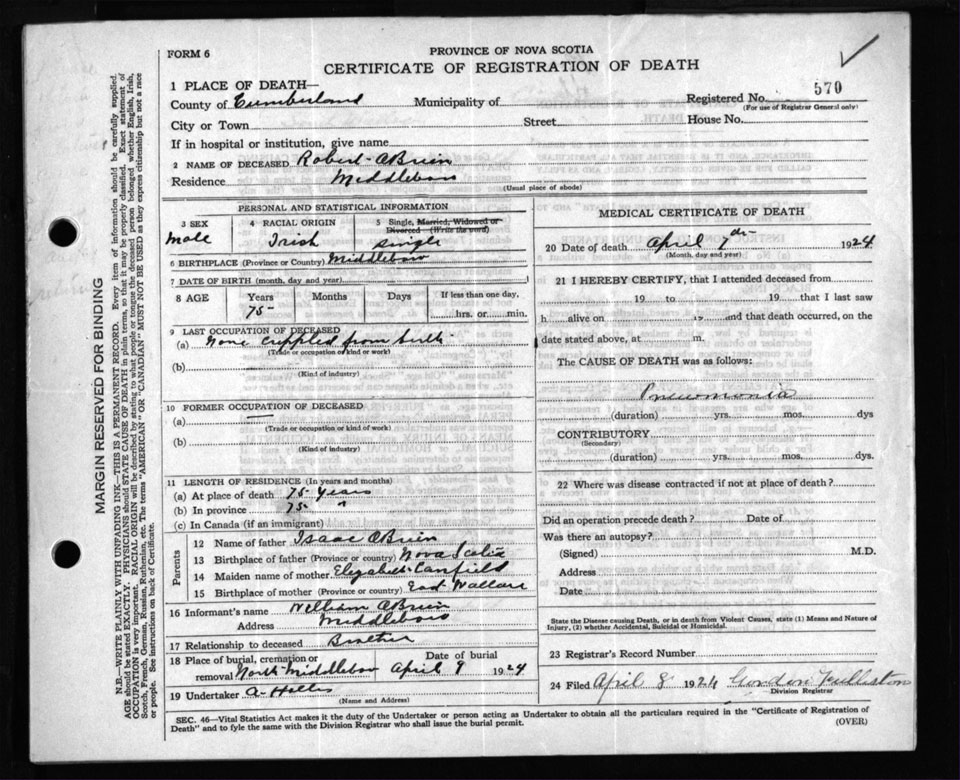 FORM 6
PROVINCE OF NOVA SCOTIA
CERTIFICATE OF REGISTRATION OF DEATH
570
1 PLACE OF DEATH—
County of Cumberland Municipality of Registered No.
(For use of Registrar General only)
City or Town Street House No.
If in hospital or institution, give name
2 NAME OF DECEASED Robert OBrien
Residence Middleboro
(Usual place of abode)
PERSONAL AND STATISTICAL INFORMATION
3 SEX 4 RACIAL ORIGIN 5 Single, Married, Widowed or
Divorced — (Write the word)
Male Irish Single
6 BIRTHPLACE (Province or Country) Middleboro
7 DATE OF BIRTH (month, day and year)
8 AGE Years Months Days If less than one day,
75 hrs. or min.
9 LAST OCCUPATION OF DECEASED
(a) None Crippled from birth
(Trade or occupation or kind or work)
(b)
(Kind of industry)
10 FORMER OCCUPATION OF DECEASED
(a) —
(Trade or occupation or kind of work)
(b)
(Kind of industry)
11 LENGTH OF RESIDENCE (In years and months)
(a) At place of death 75 Years
(b) In province 75 "
(c) In Canada (if an immigrant)
Parents
12 Name of father Isaac OBrien
13 Birthplace of father (Province or country) Nova Scotia
14 Maiden name of mother Elizabeth Canfield
15 Birthplace of mother (Province or country) East Wallace
16 Informant's name William OBrien
Address Middleboro
17 Relationship to deceased Brother
18 Place of burial, cremation or Date of burial
removal North Middleboro April 9 1924
19 Undertaker A.
(Name and Address)
MEDICAL CERTIFICATE OF DEATH
20 Date of death April 7th 1924
(Month, day and year)
21 I HEREBY CERTIFY, that I attended deceased from
19 to 19 that I last saw
h alive on 19 and that death occurred, on the
date stated above, at m.
The CAUSE OF DEATH was as follows:
Pneumonia
(duration) yrs. mos. dys
CONTRIBUTORY
(Secondary)
(duration) yrs. mos. dys.
22 Where was disease contracted if not at place of death?
Did an operation precede death? Date of
Was there an autopsy?
(Signed) M.D.
Address
Date
State the Disease causing Death, or in death from Violent Causes, state (1) Means and Nature of
Injury, (2) whether Accidental, Suicidal or Homicidal.
23 Registrar's Record Number
24 Filed April 8 1924 Gordon
Division Registrar
SEC. 46—Vital Statistics Act makes it the duty of the Undertaker or person acting as Undertaker to obtain all the particulars required in the "Certificate of Registration of
Death" and to fyle the same with the Division Registrar who shall issue the burial permit. (OVER)
MARGIN RESERVED FOR BINDING
N.B.—WRITE PLAINLY WITH UNFADING INK—THIS IS A PERMANENT RECORD. Every item of information should be carefully supplied.
AGE should be stated EXACTLY. PHYSICIANS should STATE CAUSE OF DEATH in plain terms, so that it may be properly classified. Exact statement of
OCCUPATION is very important. RACIAL ORIGIN will be described by stating to what people or tongue the deceased person belonged whether English, Irish,
Scotch, French, German, Russian, Ruthenian, etc. The terms "AMERICAN" OR "CANADIAN" MUST NOT BE USED as they express citizenship but not a race
or people. See instructions on back of Certificate.